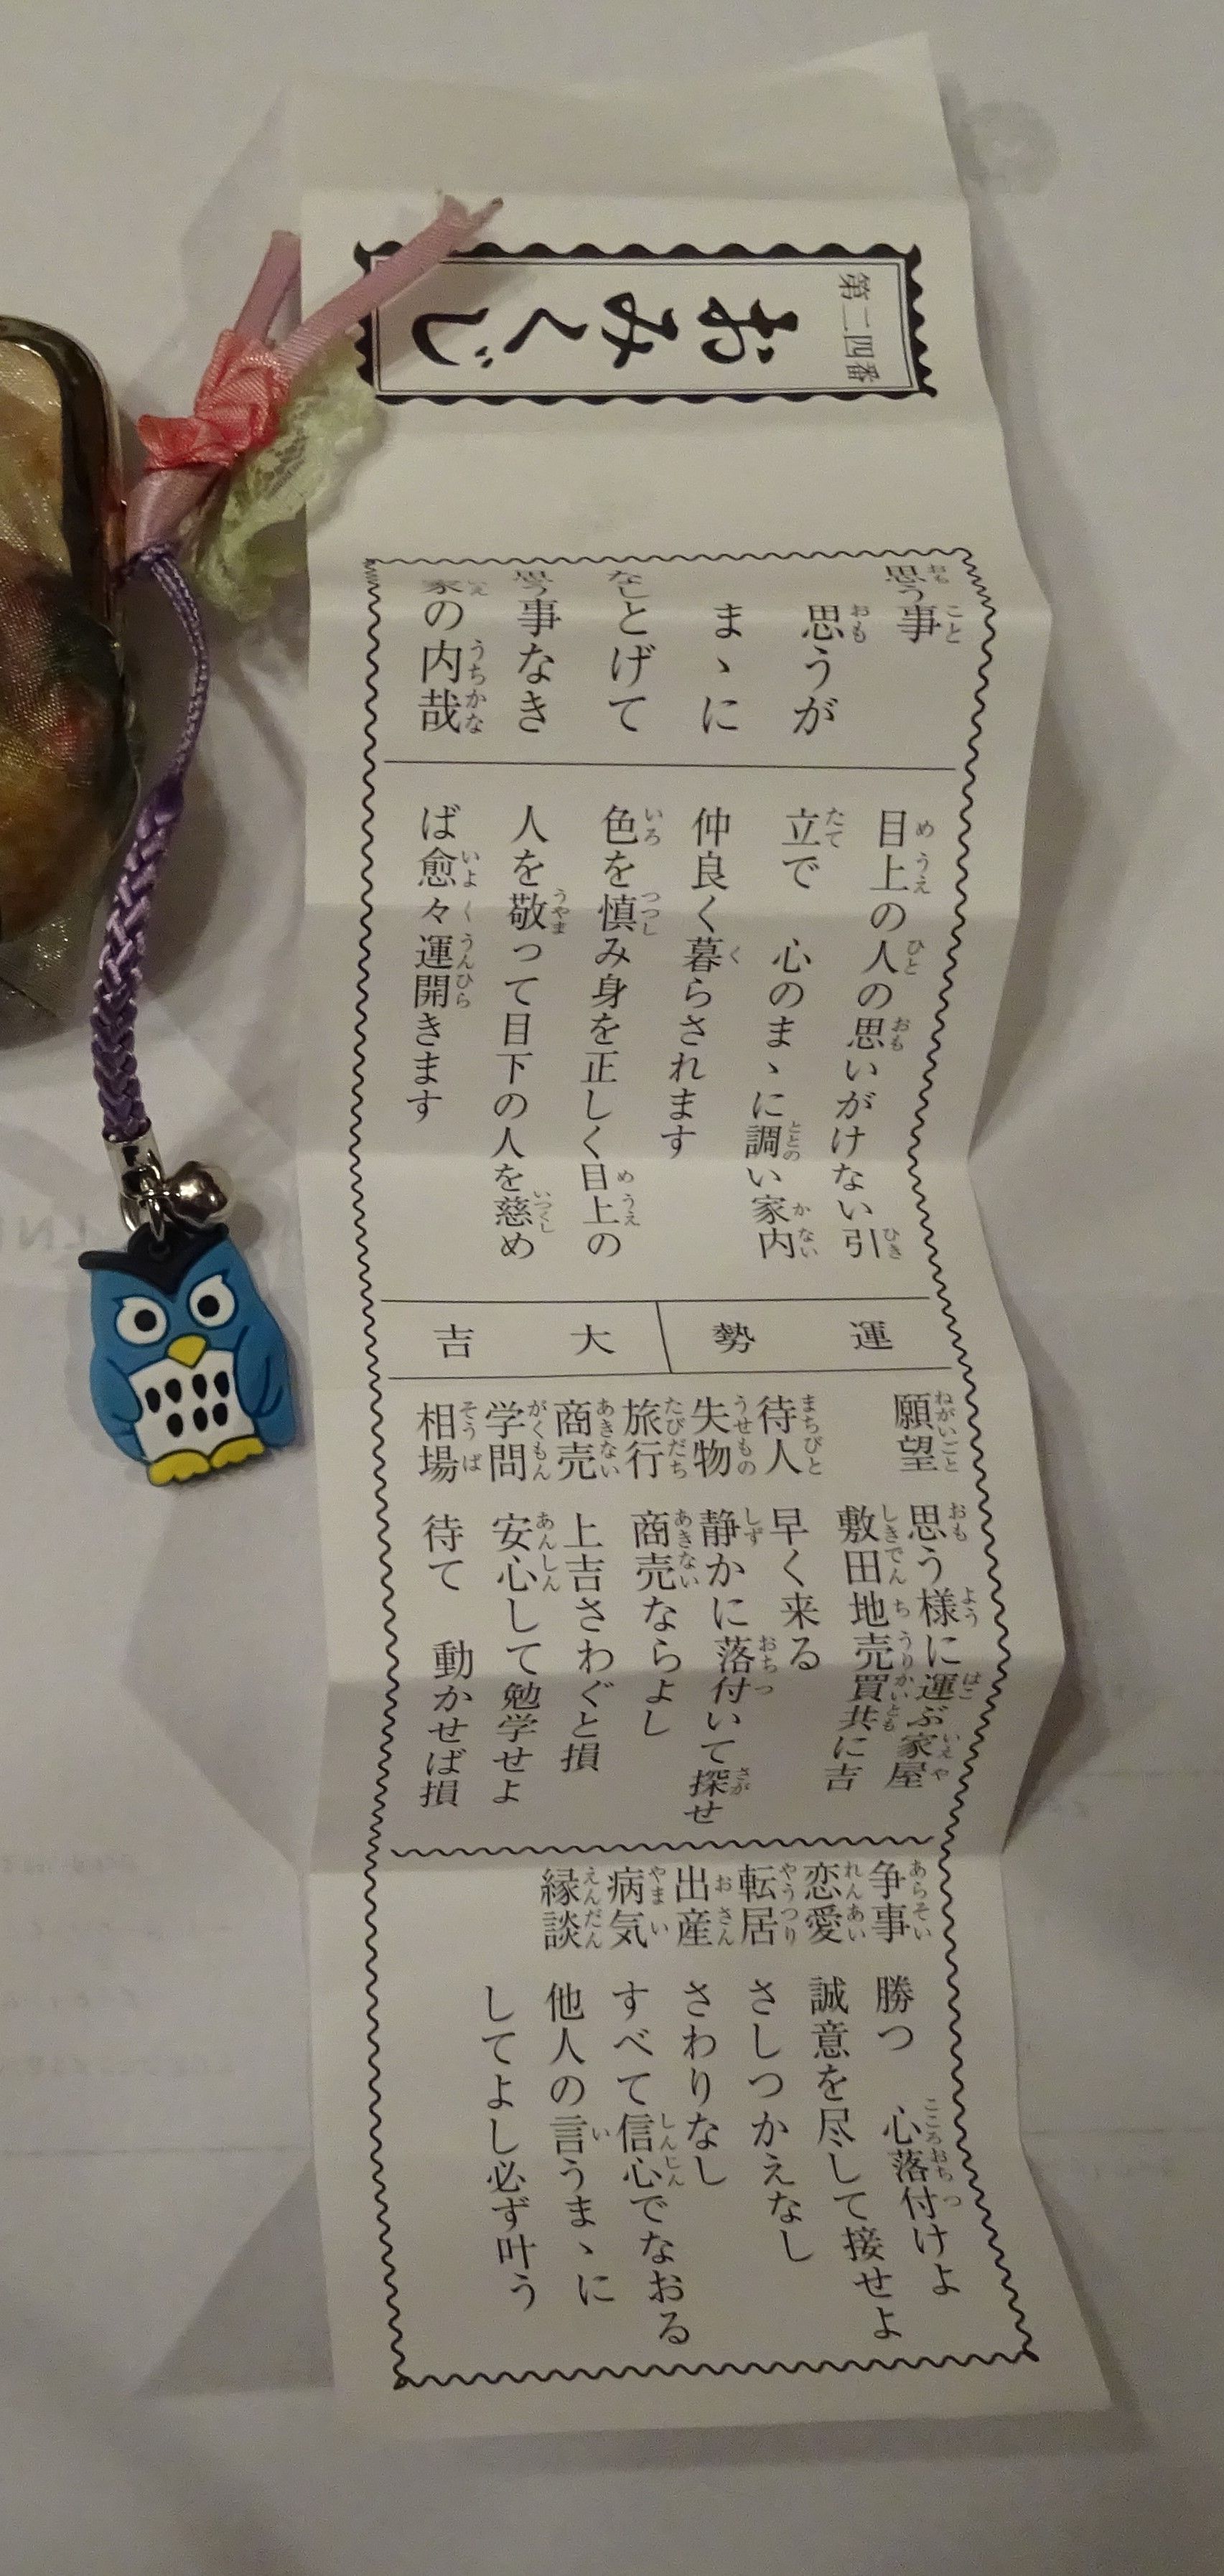 第二四番
おみくじ
思う事
思うが
まゝに
なしとげて
思う事なき
家の内哉
目上の人の思いがけない引
立で 心のまゝに調い家内
仲良く暮らされます
色を慎み身を正しく目上の
人を敬って目下の人を慈め
ば愈々運開きます
運勢 大吉
願望 思う様に運ぶ家屋
敷田地売買共に吉
待人 早く来る
失物 静かに落付いて探せ
旅行 商売ならよし
商売 上吉さわぐと損
学問 安心して勉学せよ
相場 待て 動かせば損
争事 勝つ 心落付けよ
恋愛 誠意を尽して接せよ
転居 さしつかえなし
出産 さわりなし
病気 すべて信心でなおる
縁談 他人の言うまゝに
してよし必ず叶う